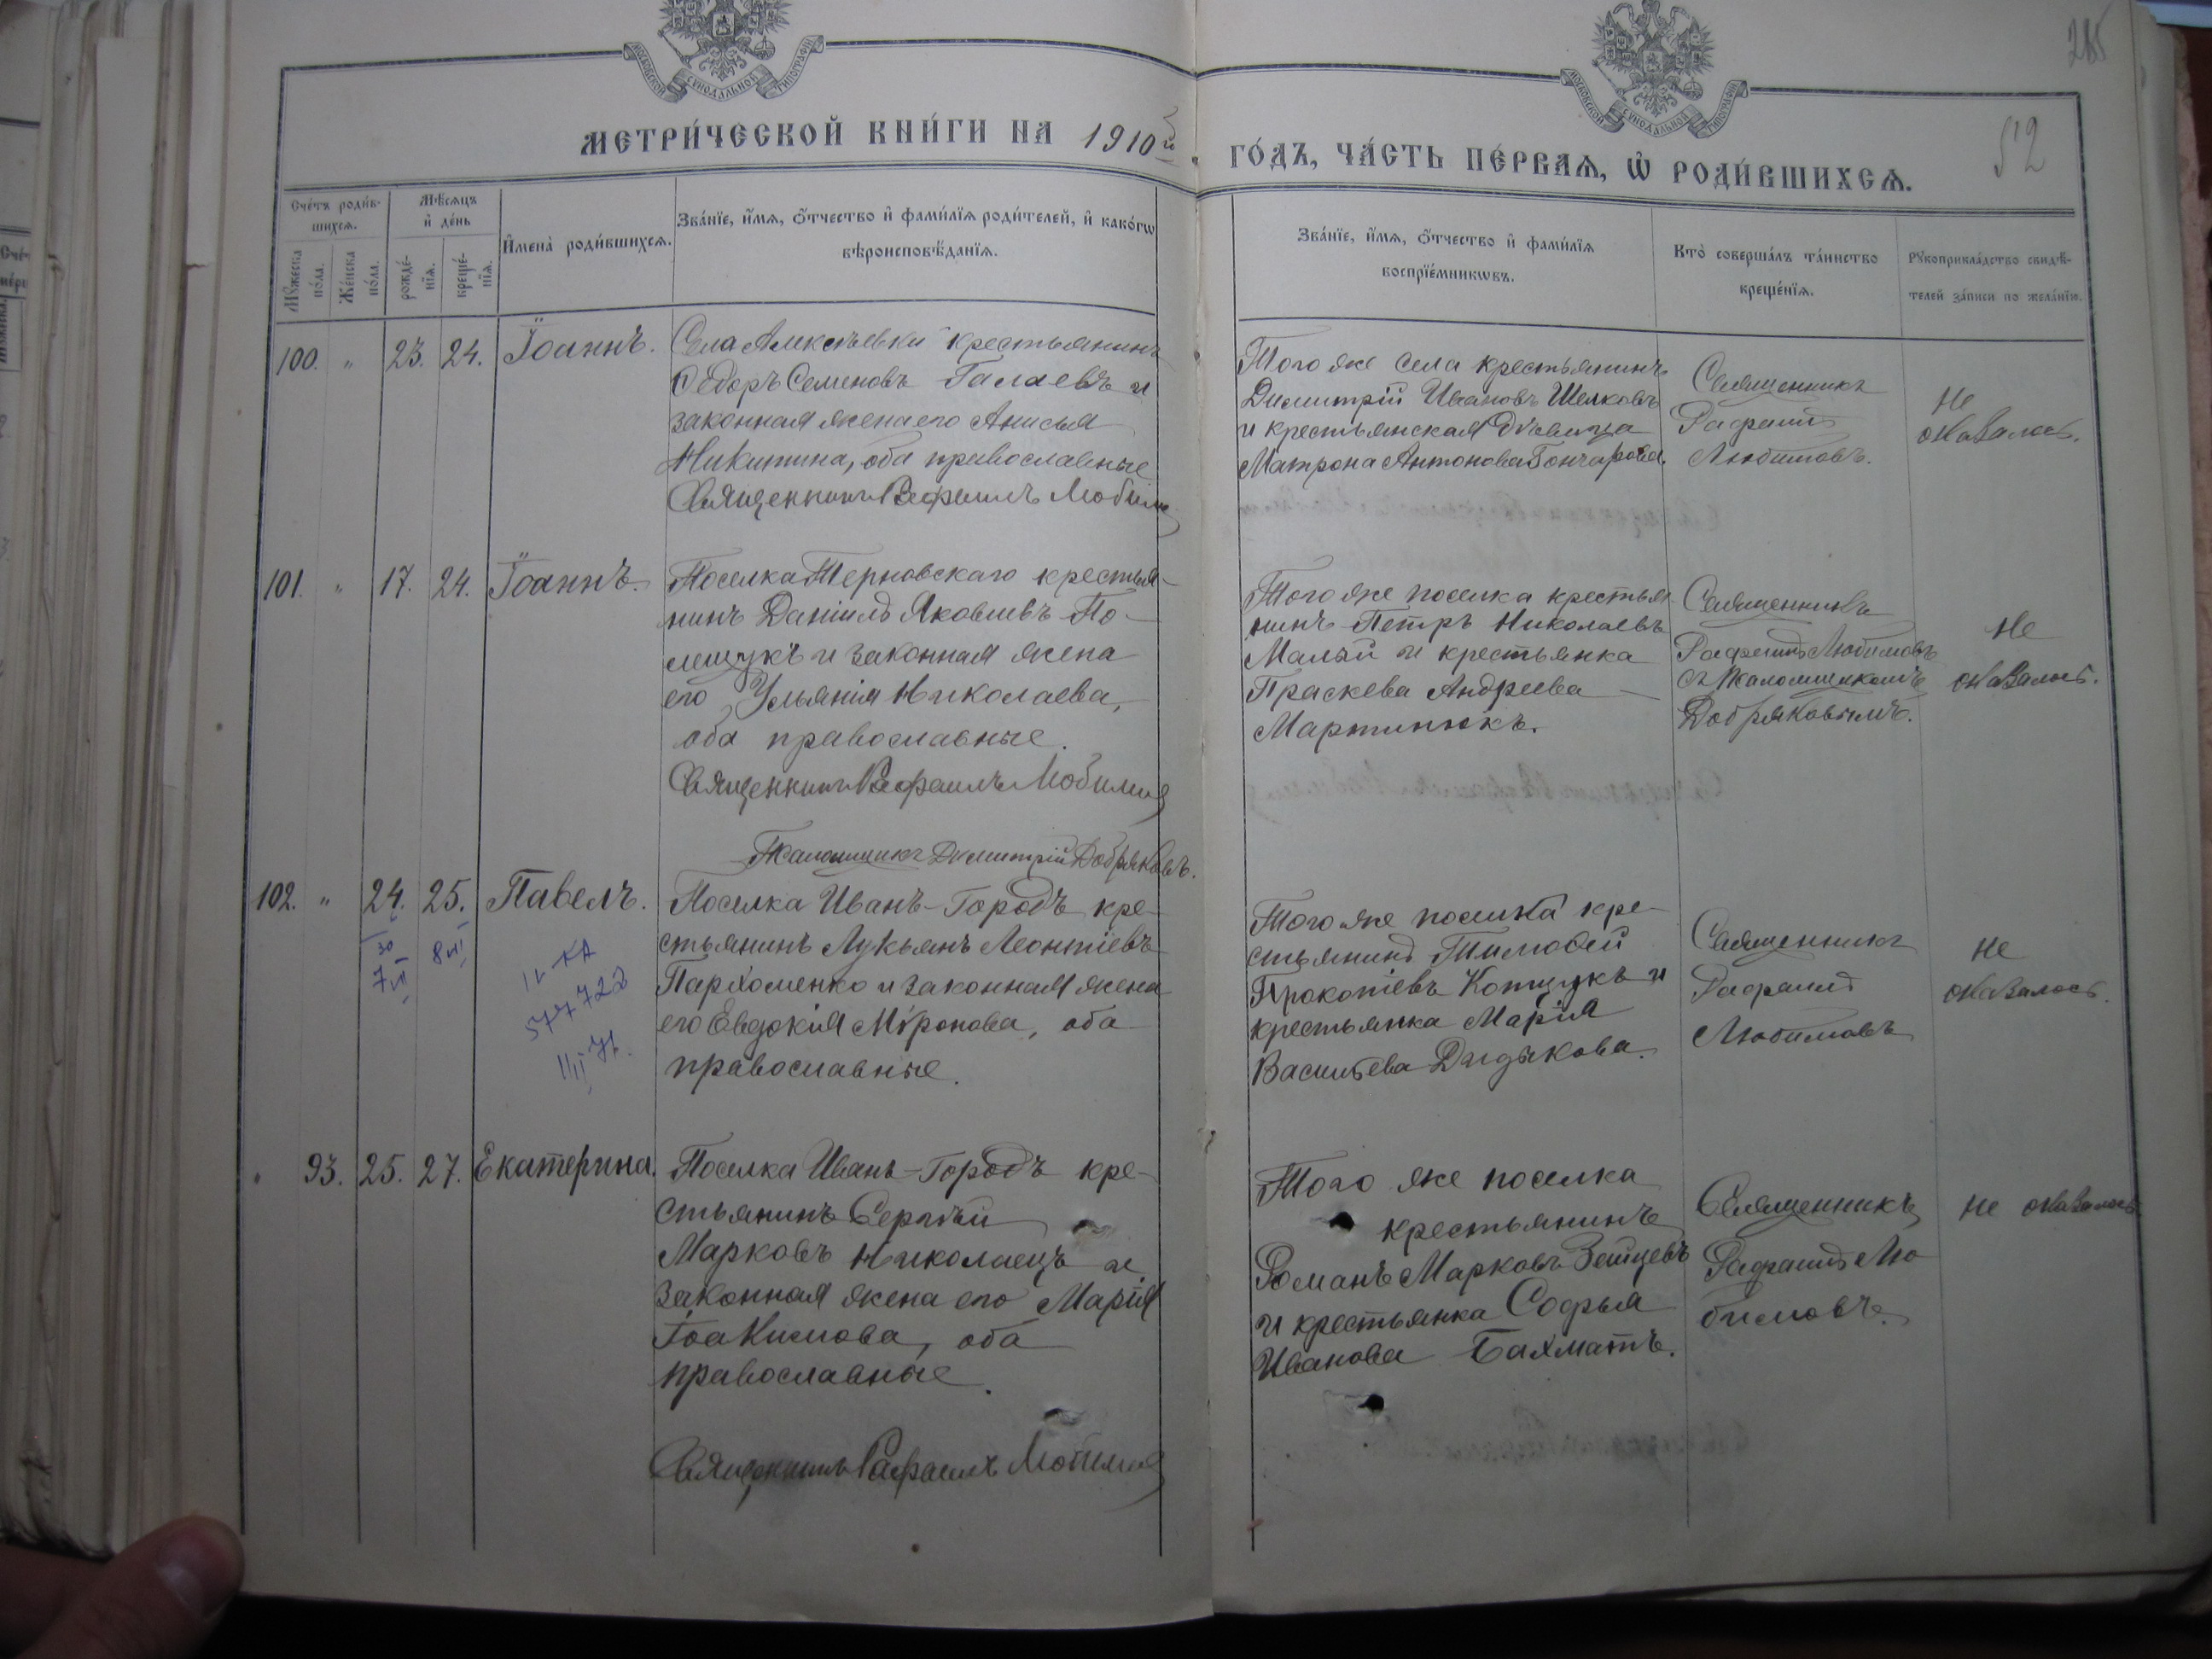 МОСКОВСКОЙ СУНОДАЛЬНОЙ ТИПОГРАФІИ
МОСКОВСКОЙ СУНОДАЛЬНОЙ ТИПОГРАФІИ
52
МЕТРИ́ЧЕСКОЙ КНИ́ГИ НА 1910й
ГО́ДЪ, ЧА́СТЬ ПЕ́РВАѦ, Ѡ҆ РОДИ́ВШИХСѦ.
Сче́тъ роди́в-
шихсѧ.
Мꙋ́жеска по́ла.
Же́нска по́ла.
Мѣ́сѧцъ
и҆ де́нь
рожде́-
нїѧ.
креще́-
нїѧ.
И҆мена̀ роди́вшихсѧ.
Зва́нїе, и҆́мѧ, ѻ҆́тчество и҆ фами́лїѧ роди́телей, и҆ како́гѡ
вѣроисповѣ́данїѧ.
Зва́нїе, и҆́мѧ, ѻ҆́тчество и҆ фами́лїѧ
воспрїе́мникѡвъ.
Кто̀ соверша́лъ та́инство
креще́нїѧ.
Рꙋкоприкла́дство свидѣ́-
телей за́писи по жела́нїю.
100. " 23. 24. Іоаннъ.
Села Алексѣевки крестьянинъ
Ѳедоръ Семеновъ Галаевъ и
законная жена его Анисья
Никитина, оба православные
Священникъ Рафаилъ Любимов
Того же села крестьянинъ
Димитрій Ивановъ Шелковъ
и крестьянская дѣвица
Матрона Антонова Гончарова.
Священникъ
Рафаилъ
Любимовъ.
Не
оказалось.
101. " 17. 24. Іоаннъ.
Поселка Терновскаго крестья-
нинъ Даніилъ Яковлевъ По-
лещукъ и законная жена
его Ульянія Николаева,
оба православные.
Священникъ Рафаилъ Любимов
Псаломщикъ Димитрій Добряковъ.
Того же поселка крестья-
нинъ Петръ Николаевъ
Малый и крестьянка
Праскева Андреева
Мартинюкъ.
Священникъ
Рафаилъ Любимовъ
съ Псаломщикомъ
Добряковымъ.
Не
оказалось.
102. " 24. 25. Павелъ.
30
7 VI
8 VI
577728
Поселка Иванъ-Городъ кре-
стьянинъ Лукьянъ Леонтіевъ
Пархоменко и законная жена
его Евдокія Мѵронова, оба
православные.
Того же поселка кре-
стьянинъ Тимоѳей
Прокопіевъ Копцукъ и
крестьянка Марія
Васильева Дидыкова.
Священникъ
Рафаилъ
Любимовъ
Не
оказалось.
" 93. 25. 27. Екатерина.
Поселка Иванъ-Городъ кре-
стьянинъ Сергѣй
Марковъ Николаецъ и
законная жена его Марія
Іоакимова, оба
православные.
Священникъ Рафаилъ Любимов
Того же поселка
крестьянинъ
Романъ Марковъ Зейцевъ
и крестьянка Софья
Иванова Бахматъ.
Священникъ
Рафаилъ Лю-
бимовъ.
Не оказалось